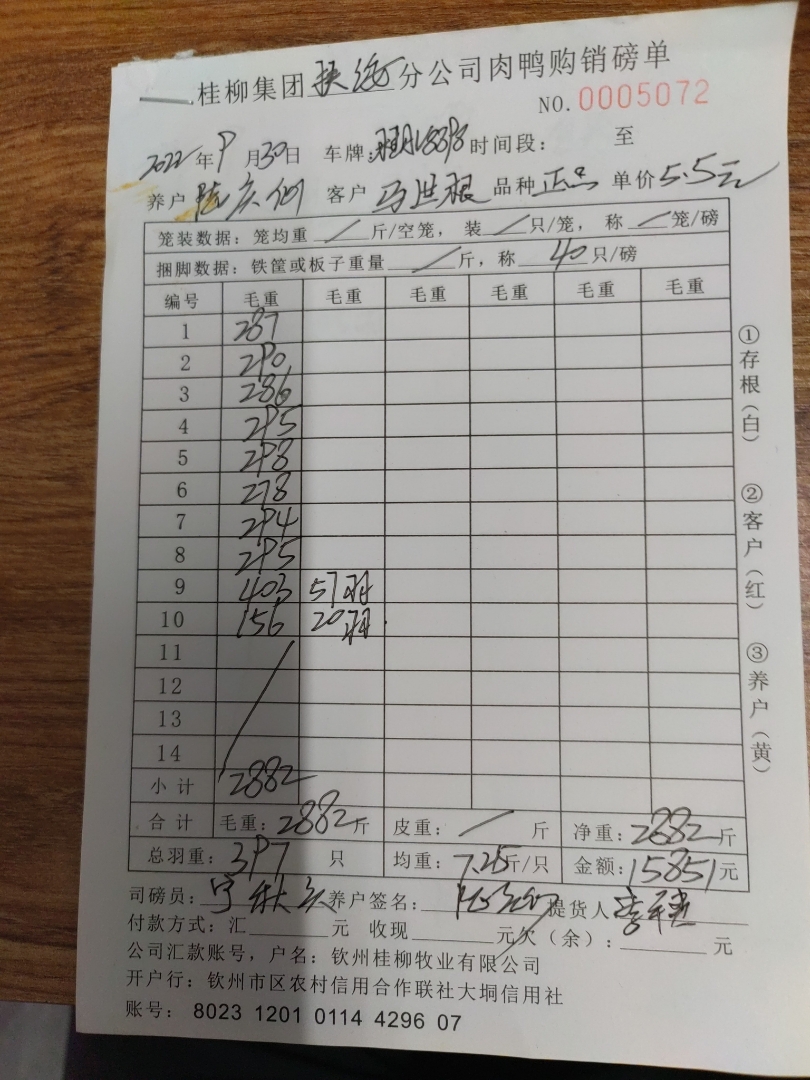 桂柳集团扶绥分公司肉鸭购销磅单
NO.0005072
2022年9月30日 车牌: 时间段: 至
养户 客户 马世根 品种 正品 单价5.5元
笼装数据: 笼均重 / 斤/空笼, 装 / 只/笼, 称 / 笼/磅
捆脚数据: 铁筐或板子重量 / 斤, 称 40 只/磅
编号 毛重 毛重 毛重 毛重 毛重 毛重
1 287
2 290
3 286
4 295
5 298
6 278
7 294
8 295
9 403 57羽
10 156 20羽
11
12
13
14
小计 2882
合计 毛重: 2882斤 皮重: / 斤 净重: 2882斤
总羽重: 397 只 均重: 7.25斤/只 金额: 15851元
司磅员: 养户签名: 提货人
付款方式: 汇 元 收现 元欠(余): 元
公司汇款账号, 户名: 钦州桂柳牧业有限公司
开户行: 钦州市区农村信用合作联社大垌信用社
账号: 8023 1201 0114 4296 07
①存根(白)
②客户(红)
③养户(黄)